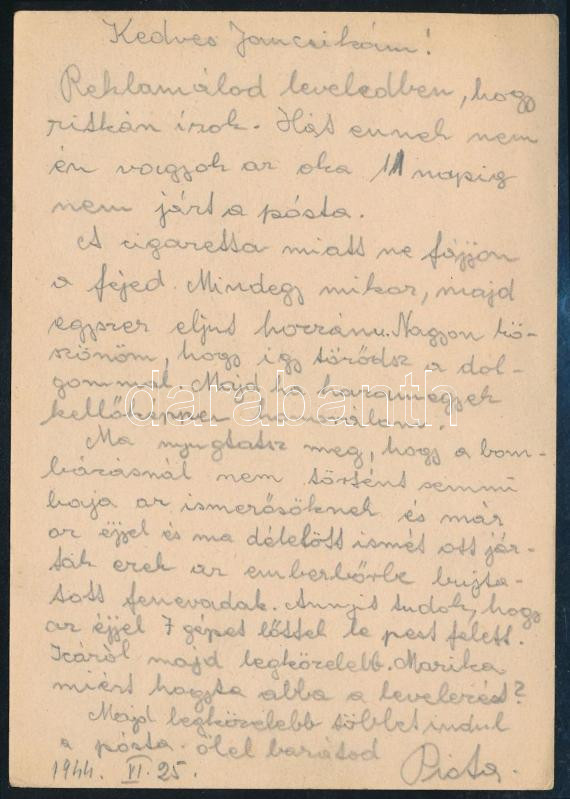 Kedves Jancsikám!
Reklamálod leveledben, hogy
ritkán irok. Hát ennek nem
én vagyok az oka 11 napig
nem járt a pósta.
A cigaretta miatt ne fájjon
a fejed. Mindegy mikor, majd
egyszer eljut hozzánk. Nagyon kö-
szönöm, hogy igy törődsz a dol-
gommal. Majd ha hazamegyek
kellőképpen
darabanth
Ma nyugtatsz meg, hogy a bom-
bázásnál nem történt semmi
baja az ismerősöknek és már
az éjjel és ma délelőtt ismét ott jár-
tak ezek az emberbőrbe bujta-
tott fenevadak. Annyit tudok, hogy
az éjjel 7 gépet lőttek le pest felett.
Icáról majd legközelebb. Marika
miért hagyta abba a levelezést?
Majd legközelebb többet indul
a pósta. ölel barátod
1944. VI. 25.